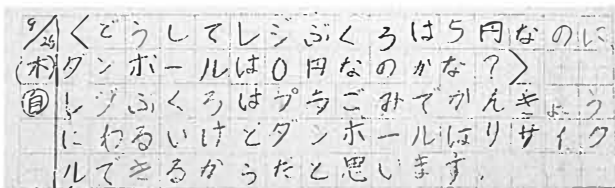 9/25 <どうしてレジぶくろは5円なのに
(木) ダンボールは0円なのかな?>
自 レジぶくろはプラごみでかんきょう
にわるいけどダンボールはリサイク
ルできるからだと思います.